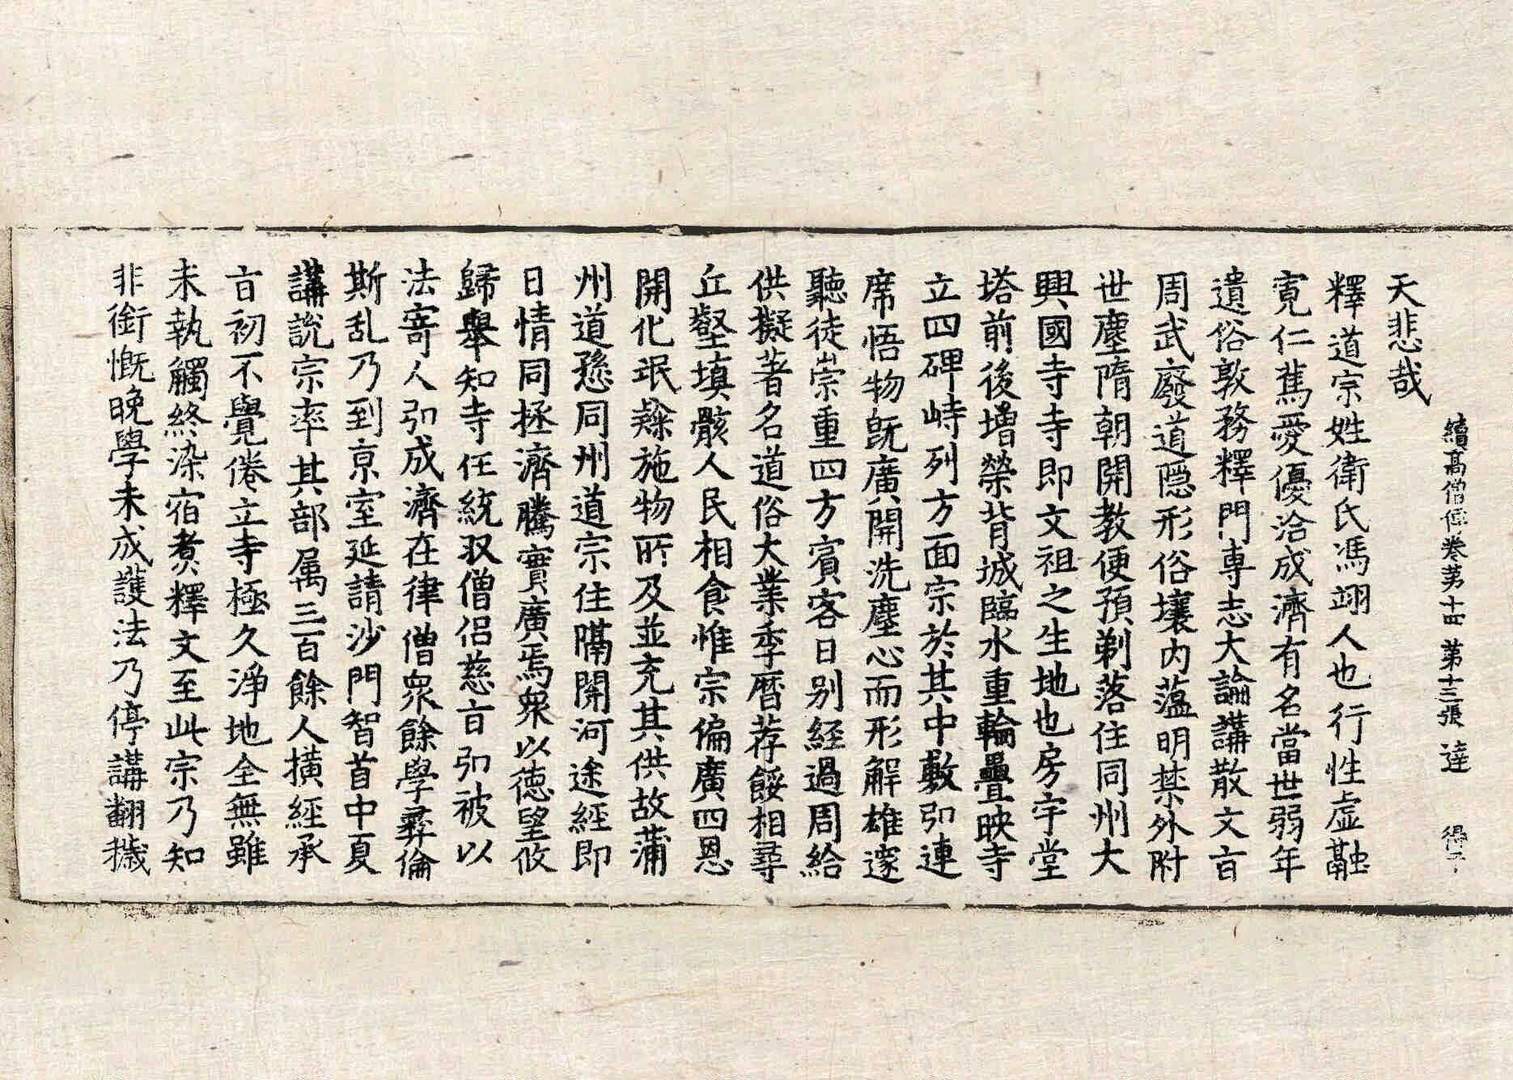 續高僧傳卷苐十四 第十三張 達 得二
天悲哉
釋道宗姓衛氏馮翊人也行性虛融
寛仁篤愛優洽成濟有名當世弱年
遺俗敦務釋門專志大論講散文言
周武廢道隱形俗壤内藴明禁外附
世塵隋朝開教便預剃落住同州大
興國寺寺即文祖之生地也房宇堂
塔前後增榮背城臨水重輪疊映寺
立四碑峙列方面宗於其中敷弘連
席悟物既廣開洗塵心而形解雄邃
聽徒崇重四方賓客日別經過周給
供擬著名道俗大業季曆荐餧相尋
丘壑填骸人民相食惟宗偏廣四恩
開化氓隸施物所及並充其供故蒲
州道愻同州道宗住隔關河途經即
日情同拯濟騰實廣焉衆以德望攸
歸舉知寺任統収僧侣慈旨弘被以
法寄人弘成濟在律僧衆餘學彛倫
斯乱乃到亰室延請沙門智首中夏
講說宗率其部属三百餘人橫經承
旨初不覺倦立寺極久淨地全無雖
未執觸終染宿煑釋文至此宗乃知
非銜慨晚學未成護法乃停講翻穢